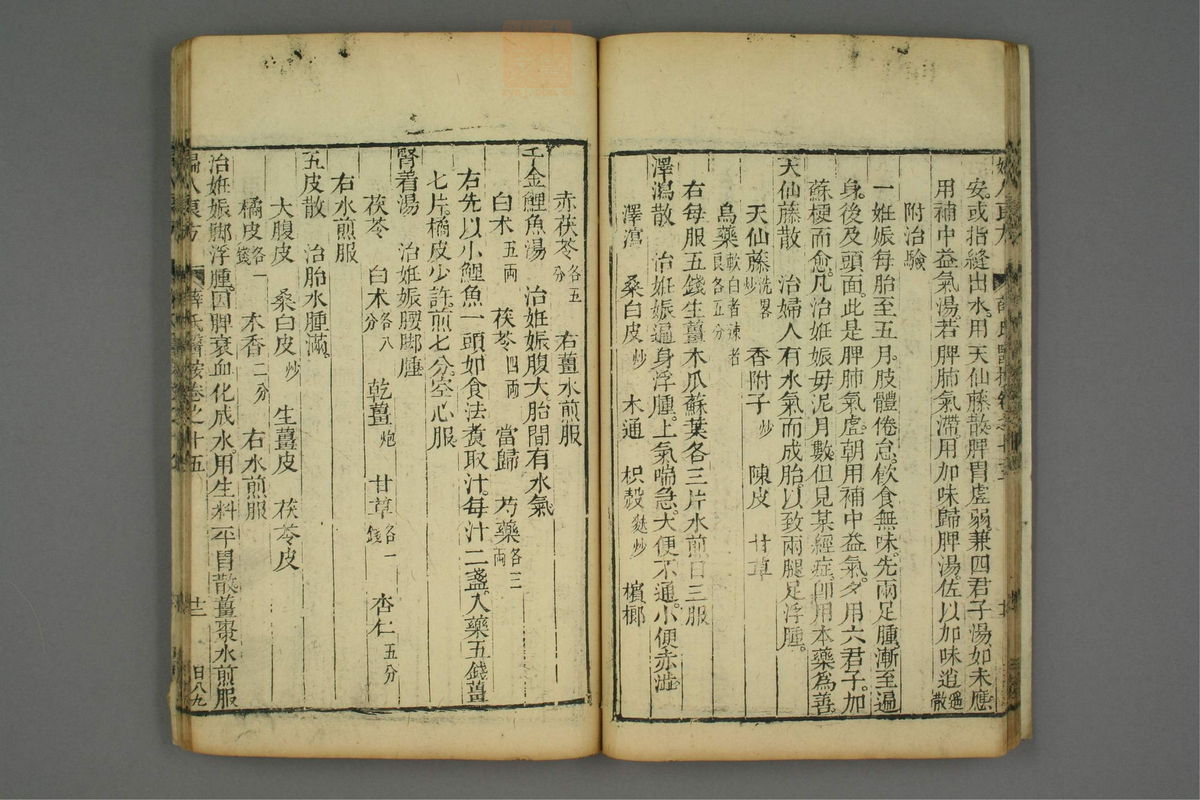 安。或指縫出水。用天仙藤散。脾胃虛弱。兼四君子湯。如未應。
用補中益氣湯。若脾肺氣滯。用加味歸脾湯。佐以加味逍遥散
附治驗
一姙娠每胎至五月。肢體倦怠。飲食無味。先兩足腫。漸至遍
身。後及頭面。此是脾肺氣虛。朝用補中益氣。夕用六君子。加
蘇梗而愈。凡治姙娠。毋泥月數。但見某經症。卽用本藥爲善。
天仙藤散　治婦人有水氣而成胎。以致兩腿足浮腫。
天仙藤洗畧炒　香附子炒　陳皮　甘草
烏藥軟白者辣者良各五分
右每服五錢生薑木瓜蘇葉各三片水煎日三服
澤瀉散　治姙娠遍身浮腫。上氣喘急。大便不通。小便赤澁
澤瀉　桑白皮炒　木通　枳殼麩炒　檳榔
赤茯苓各五分　右薑水煎服
千金鯉魚湯　治姙娠腹大。胎間有水氣
白术五兩　茯苓四兩　當歸　芍藥各三兩
右先以小鯉魚一頭如食法煑取汁。每汁二盞。入藥五錢薑
七片。橘皮少許煎七分。空心服
腎着湯　治姙娠腰脚腫
茯苓　白术各八分　乾薑炮　甘草各一錢　杏仁五分
右水煎服
五皮散　治胎水腫滿。
大腹皮　桑白皮炒　生薑皮　茯苓皮
橘皮各一錢　木香二分　右水煎服
治姙娠脚浮腫。因脾衰血化成水。用生料平胃散薑棗水煎服
婦人良方　薛氏醫按卷之十五　廿二　日八九